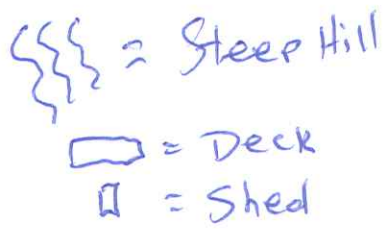 = Steep Hill
= Deck
= Shed